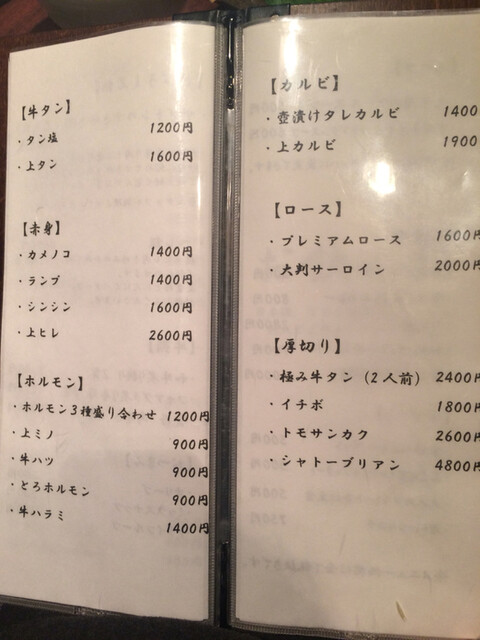 【牛タン】
・タン塩 1200円
・上タン 1600円
【赤身】
・カメノコ 1400円
・ランプ 1400円
・シンシン 1600円
・上ヒレ 2600円
【ホルモン】
・ホルモン3種盛り合わせ 1200円
・上ミノ 900円
・牛ハツ 900円
・とろホルモン 900円
・牛ハラミ 1400円
【カルビ】
・壺漬けタレカルビ 1400
・上カルビ 1900
【ロース】
・プレミアムロース 1600円
・大判サーロイン 2000円
【厚切り】
・極み牛タン(2人前) 2400円
・イチボ 1800円
・トモサンカク 2600円
・シャトーブリアン 4800円